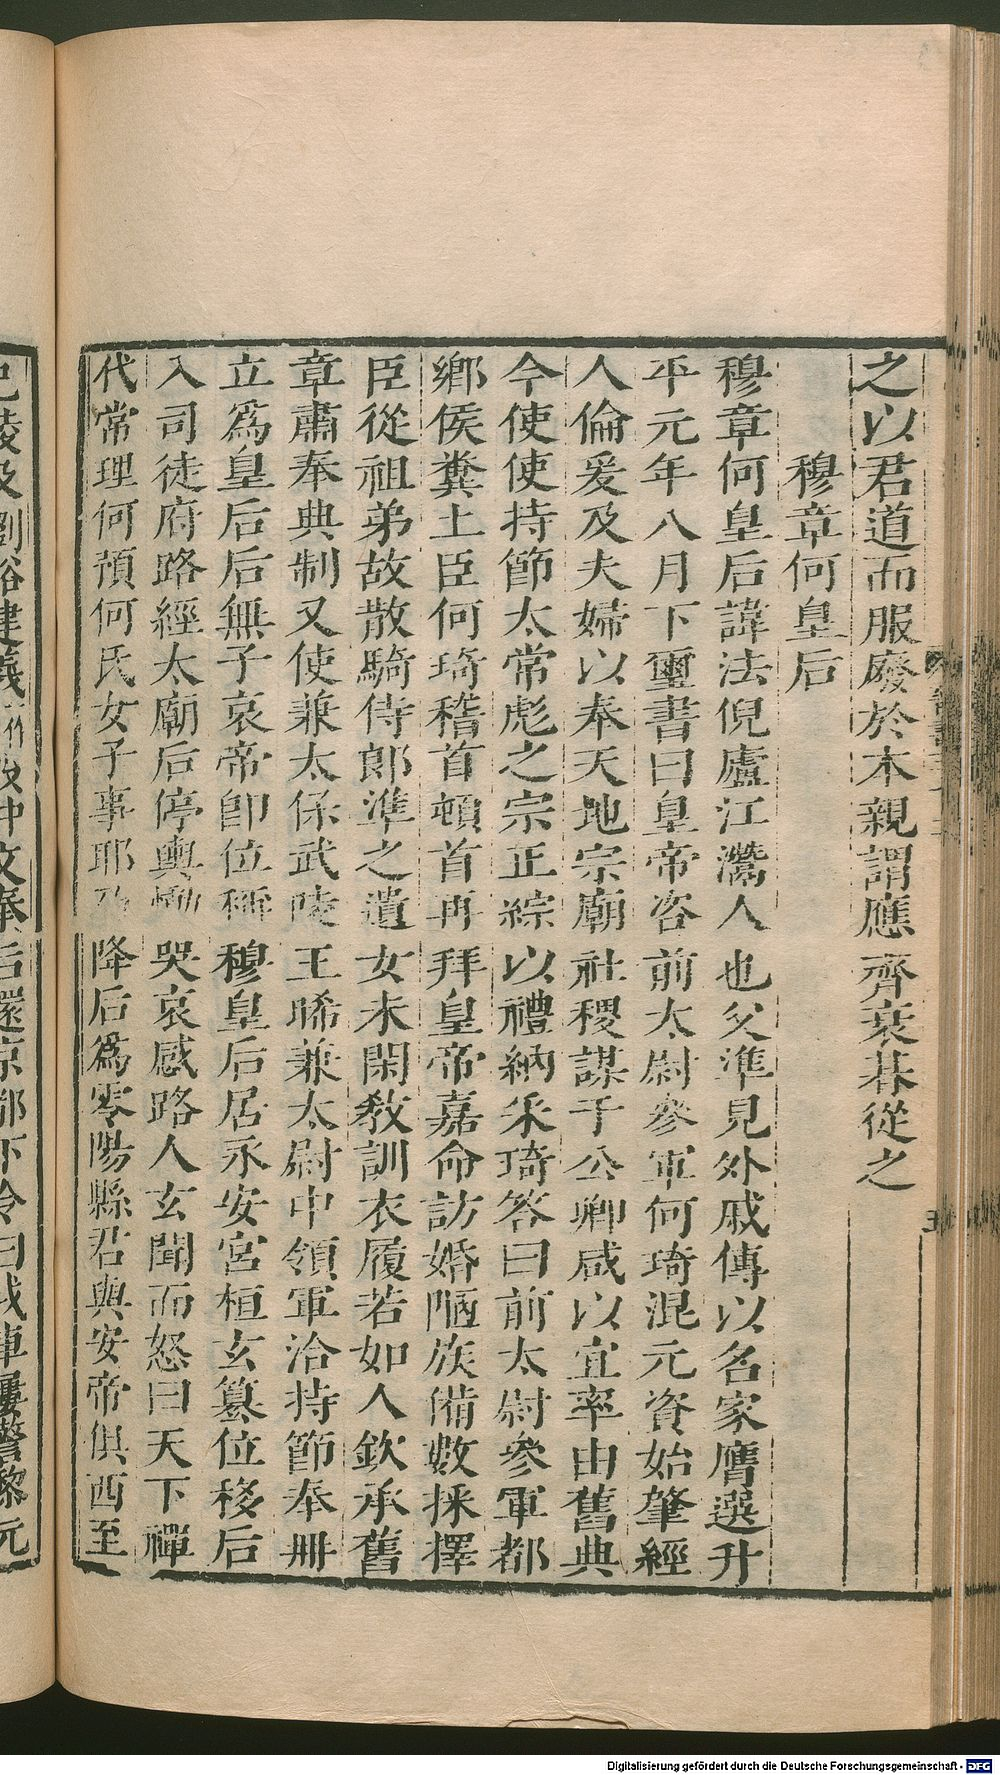 之以君道而服廢於本親謂應齊衰朞從之
穆章何皇后
穆章何皇后諱法倪廬江灊人也父準見外戚傳以名家膺選升
平元年八月下璽書曰皇帝咨前太尉參軍何琦混元資始肇經
人倫爰及夫婦以奉天地宗廟社稷謀于公卿咸以宜率由舊典
今使使持節太常彪之宗正綜以禮納采琦答曰前太尉參軍都
鄉侯糞土臣何琦稽首頓首再拜皇帝嘉命訪婚陋族備數採擇
臣從祖弟故散騎侍郎準之遺女未閑教訓衣履若如人欽承舊
章肅奉典制又使兼太保武陵王晞兼太尉中領軍洽持節奉冊
立爲皇后后無子哀帝卽位稱穆皇后居永安宮桓玄篡位移后
入司徒府路經太廟后停輿慟哭哀感路人玄聞而怒曰天下禪
代常理何預何氏女子事耶乃降后爲零陽縣君與安帝俱西至
巴陵及劉裕建義 文奉后還京都下令曰戎車屢警黎元
Digitalisierung gefördert durch die Deutsche Forschungsgemeinschaft - DFG